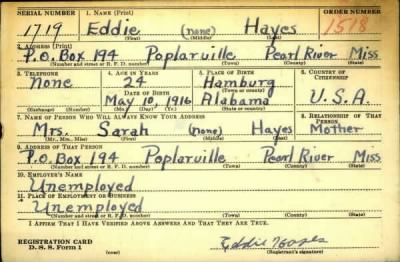 SERIAL NUMBER 1. NAME (Print) ORDER NUMBER
1719 Eddie (none) Hayes 1518
(First) (Middle) (Last)
2. ADDRESS (Print)
P.O. Box 194 Poplarville Pearl River Miss
(Number and street or R. F. D. number) (Town) (County) (State)
3. TELEPHONE 4. AGE IN YEARS 5. PLACE OF BIRTH 6. COUNTRY OF CITIZENSHIP
None 24 Hamburg
DATE OF BIRTH (Town or county)
May 10, 1916 Alabama U.S.A.
(Exchange) (Number) (Mo.) (Day) (Yr.) (State or country)
7. NAME OF PERSON WHO WILL ALWAYS KNOW YOUR ADDRESS 8. RELATIONSHIP OF THAT PERSON
Mrs. Sarah (none) Hayes Mother
(Mr., Mrs., Miss) (First) (Middle) (Last)
9. ADDRESS OF THAT PERSON
P.O. Box 194 Poplarville Pearl River Miss
(Number and street or R. F. D. number) (Town) (County) (State)
10. EMPLOYER'S NAME
Unemployed
11. PLACE OF EMPLOYMENT OR BUSINESS
Unemployed
(Number and street or R. F. D. number) (Town) (County) (State)
I AFFIRM THAT I HAVE VERIFIED ABOVE ANSWERS AND THAT THEY ARE TRUE.
REGISTRATION CARD Eddie Hayes
D. S. S. Form 1 (Registrant's signature)